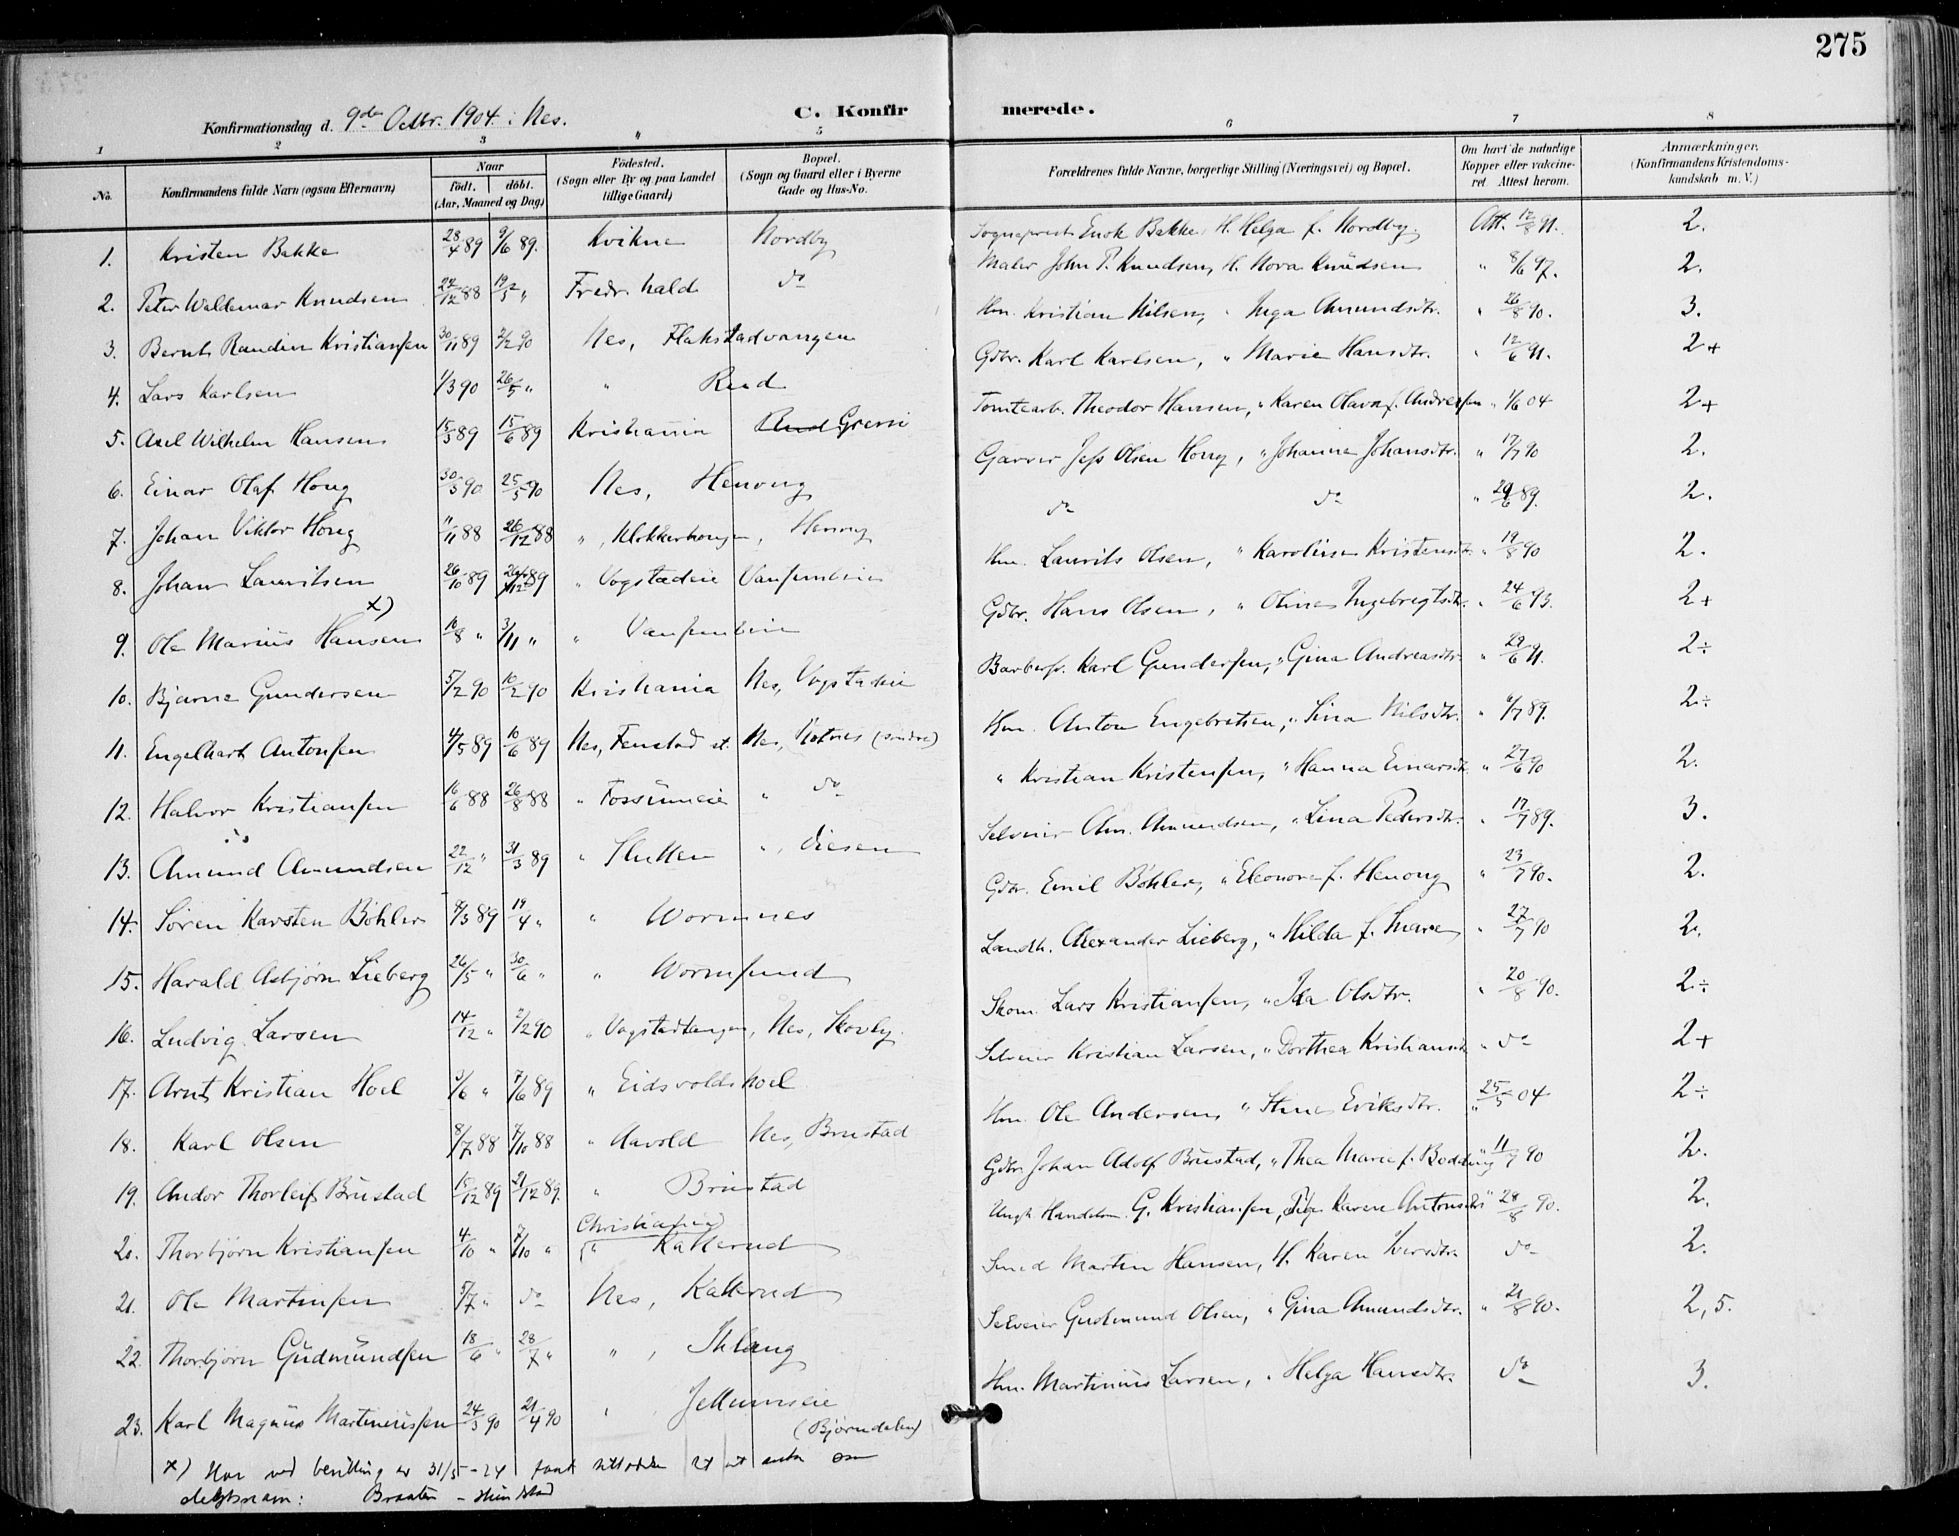 275
Konfirmationsdag d. 9de Octbr. 1904 i Nes. C. Konfirmerede.
1 2 3 " 5 6 7 8
No. Konfirmandens fulde Navn (ogsaa Efternavn) Naar født. døbt. (Aar, Maaned og Dag) Födested. (Sogn eller By og paa Landet tillige Gaard) Bopæl. (Sogn og Gaard eller i Byerne Gade og Hus-No. Forældrenes fulde Navne, borgerlige Stilling (Næringsvei) og Bopæl. Om havt de naturlige Kopper eller vakcineret Attest herom. Anmærkninger. (Konfirmandens Kristendomskundskab m. V.)
1. Kristen Bakke 28/4 89 9/6 89. Kvikne Nordby Sogneprest Enok Bakke, H. Helga f. Nordby. Att. 12/8 91. 2.
2. Peter Waldemar Knudsen 22/12 88 19/5 " Fredr.hald do Maler John P. Knudsen, H. Nora Knudsen " 8/6 97. 2.
3. Bernt Randin Kristiansen 30/11 89 2/2 90 Nes, Flakstadvangen Hm. Kristian Nilsen, " Inga Amundsdtr. " 26/8 90. 3.
4. Lars Karlsen 1/3 90 26/5 " " Rud Gdbr. Karl Karlsen, " Marie Hansdtr. " 12/6 91. 2+
5. Axel Wilhelm Hansen 15/3 89 15/6 89 Kristiania Rud Grevsi Tomtearb. Theodor Hansen, " Karen Olava f. Andresen " 1/6 04 2+
6. Einar Olaf Houg 30/3 90 25/5 90 Nes, Henong Garver Jess Olsen Houg, " Johanne Johansdtr. " 17/7 90 2.
7. Johan Viktor Houg 11/11 88 26/12 88 " , Klokkerhougen, Henong do do " 29/6 89. 2.
8. Johan Lauritsen 26/10 89 26/12 89 " Vogstadeie Hm. Laurits Olsen, " Karoline Kristensdtr. " 19/8 90 2.
9. Ole Marius Hansen x) 16/8 " 3/11 " " Gdbr. Hans Olsen, " Oline Ingebregtsdtr. " 24/6 93. 2+
10. Bjarne Gundersen 5/2 90 16/2 90 Kristiania Nes, Vogstadeie Barberfr. Karl Gundersen, " Gina Andreasdtr. " 29/6 91. 2÷
11. Engelhart Antonsen 4/5 89 10/6 89 Nes, Fenstad st. Nes, (søndre) Hm. Anton Engebretsen, " Sina Nilsdtr. " 4/7 89. 2÷
12. Halvor Kristiansen 16/6 88 26/8 88 " Fossumeie " do " Kristian Kristensen, " Hanna Einarsdtr. " 27/6 90 2.
13. Amund Amundsen 22/12 " 31/3 89 " Slutten " Diesen Selveier Am. Amundsen, " Lina Pedersdtr. " 17/7 89. 3.
14. Søren Karsten Bøhler 9/3 89 19/4 " " Wormnes Gdbr. Emil Bøhler, " Eleonore f. Henong " 23/7 90. 2.
15. Harald Asbjørn Lieberg 26/5 " 30/6 " " Wormsund Landh. Alexander Lieberg, " Hilda f. Svare " 27/7 90 2.
16. Ludvig Larsen 14/12 " 2/2 90 " Vogstadtangen, Nes, Skovby. Skom. Lars Kristiansen, " Ida Olsdtr. " 20/8 90. 2÷
17. Arnt Kristian Hoel 3/6 " 7/6 89 " Eidsvoldshoel Selveier Kristian Larsen, " Dorthea Kristiansdtr. " do 2+
18. Karl Olsen 8/7 88 7/10 88 " Aavold Nes, Brustad Hm. Ole Andersen, " Stine Eriksdtr. " 25/5 04 2÷
19. Andor Thorleif Brustad 15/12 89 21/12 89. " Brustad Gdbr. Johan Adolf Brustad, " Thea Marie f. Bodding " 11/7 90 2.
20. Thorbjørn Kristiansen 4/10 " 7/10 " Christiania " Kallerud Ungk. Handelsm. G. Kristiansen, Pige Karen Antonsdtr " 28/8 90. 2.
21. Ole Martinsen 5/7 " do Nes, Kallerud Smed Martin Hansen, H. Karen Iversdtr. do 2.
22. Thorbjørn Gudmundsen 18/6 " 28/7 " " , Ihlang Selveier Gudmund Olsen, " Gina Amundsdtr. " 21/8 90. 2,5.
23. Karl Magnus Martiniussen 24/3 90 21/4 90 " Jellumseie (Bjørndalen) Hm. Martinius Larsen, " Helga Hansdtr. do 3.
x) Har ved bevilling av 31/5 - 24 faat tilladelse til at anta som
slektsnavn: Braaten -